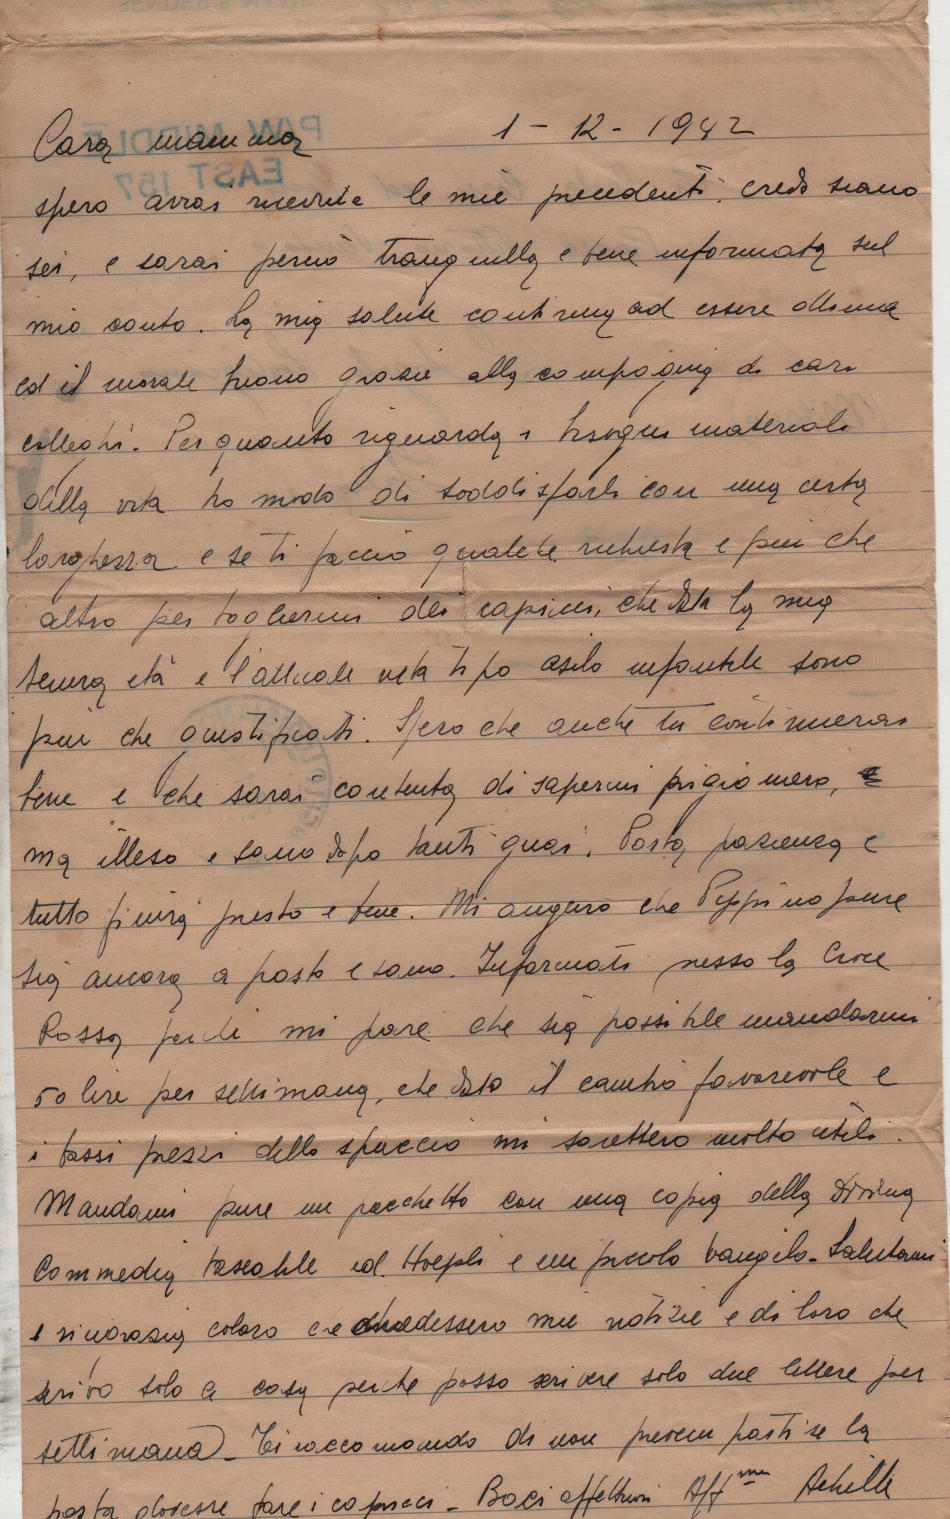 1-12-1942
Cara mamma
P/W MIDDLE
EAST 157
spero avrai ricevute le mie precedenti, credo siano
sei, e sarai perciò tranquilla e bene informata sul
mio conto. La mia salute continua ad essere ottima
ed il morale buono grazie alla compagnia di cari
colleghi. Per quanto riguarda i bisogni materiali
della vita ho modo di soddisfarli con una certa
larghezza e se ti faccio qualche richiesta e piu che
altro per togliermi dei capricci, che data la mia
tenera età e l'attuale vita tipo asilo infantile sono
piu che giustificati. Spero che anche tu continuerai
bene e che sarai contenta di sapermi prigioniero,
ma illeso e sano dopo tanti guai. Porta pazienza e
tutto finirà presto e bene. Mi auguro che Peppino pure
sia ancora a posto e sano. Informati presso la Croce
Rossa perchè mi pare che sia possibile mandarmi
50 lire per settimana, che dato il cambio favorevole e
i bassi prezzi dello spaccio mi sarebbero molto utili.
Mandami pure un pacchetto con una copia della Divina
Commedia tascabile ed. Hoepli e un piccolo Vangelo. Salutami
e ringrazia coloro che chiedessero mie notizie e di loro che
scrivo solo a casa perche posso scrivere solo due lettere per
settimana. Ti raccomando di non preoccuparti se la
posta dovesse fare i capricci - Baci affettuosi Aff.mo Achille